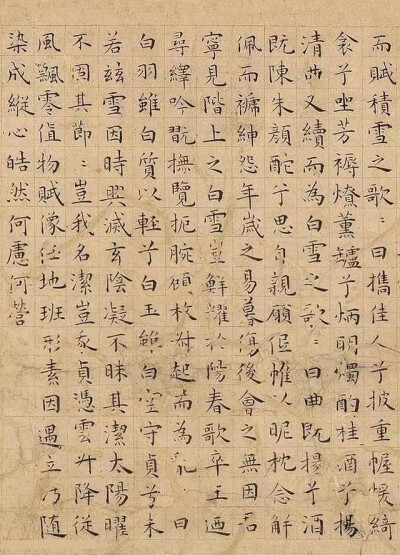 而賦積雪之歌〻曰攜佳人兮披重幄援綺
衾兮坐芳褥燎薰鑪兮炳明燭酌桂酒兮揚
清曲又續而為白雪之歌〻曰曲既揚兮酒
既陳朱顏酡兮思自親願低帷以昵枕念解
佩而褫紳怨年歲之易暮傷後會之無因君
寧見階上之白雪豈鮮耀於陽春歌卒王迺
尋繹吟翫撫覽扼腕顧枚叔起而為亂曰
白羽雖白質以輕兮白玉雖白空守貞兮未
若茲雪因時興滅玄陰凝不昧其潔太陽曜
不固其節〻豈我名潔豈我貞憑雲升降從
風飄零值物賦像任地班形素因遇立汙隨
染成縱心皓然何慮何營